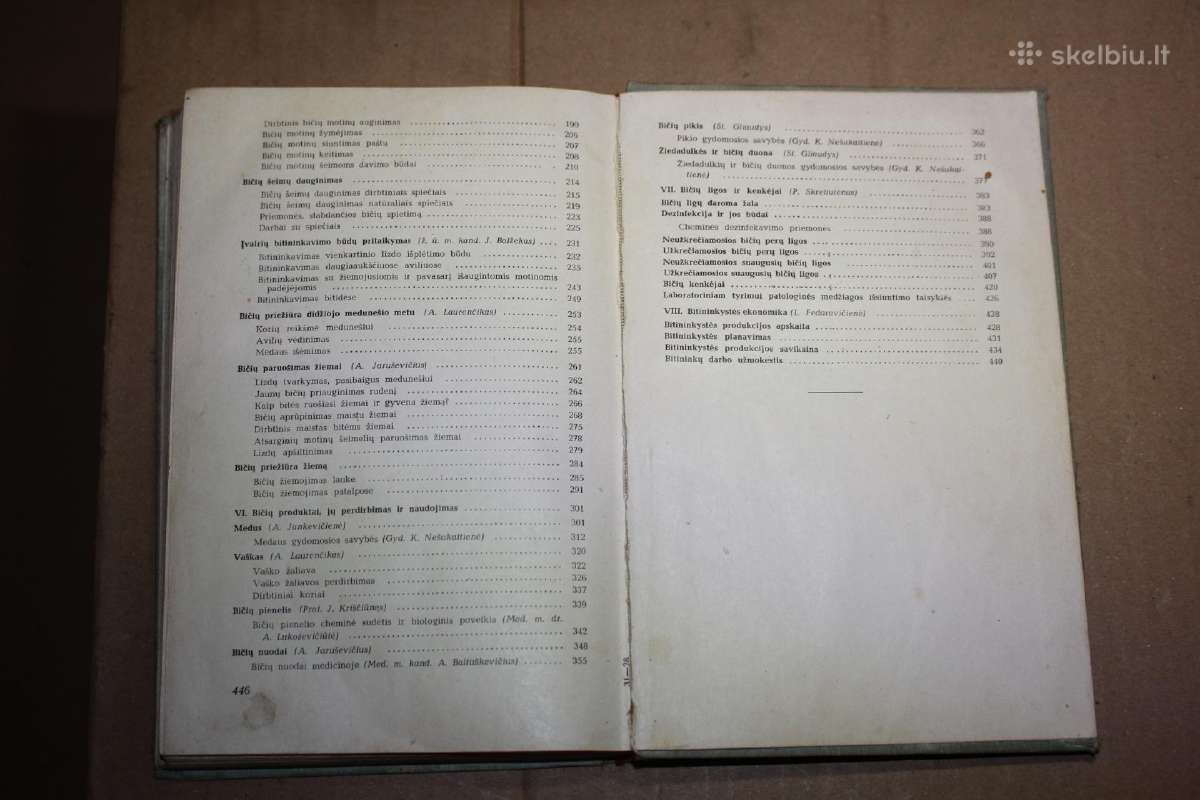 skelbiu.lt
Dirbtinis bičių motinų auginimas 199
Bičių motinų žymėjimas 206
Bičių motinų siuntimas paštu 207
Bičių motinų keitimas 208
Bičių motinų šeimoms davimo būdai 210
Bičių šeimų dauginimas 214
Bičių šeimų dauginimas dirbtiniais spiečiais 215
Bičių šeimų dauginimas natūraliais spiečiais 219
Priemonės, slabdančios bičių spietimą 223
Darbai su spiečiais 225
Įvairių bitininkavimo būdų pritaikymas (ž. ū. m. kand. J. Balžekas) 231
Bitininkavimas vienkartinio lizdo išplėtimo būdu 232
Bitininkavimas daugiaaukščiuose aviliuose 235
Bitininkavimas su žiemojusiomis ir pavasarį išaugintomis motinomis
padėjėjomis 243
Bitininkavimas bitidėse 249
Bičių priežiūra didžiojo medunešio metu (A. Laurenčikas) 253
Korių reikšmė medunešiui 254
Avilių vėdinimas 255
Medaus išėmimas 255
Bičių paruošimas žiemai (A. Jaruševičius) 261
Lizdų tvarkymas, pasibaigus medunešiui 262
Jaunų bičių priauginimas rudenį 264
Kaip bitės ruošiasi žiemai ir gyvena žiemą? 266
Bičių aprūpinimas maistu žiemai 268
Dirbtinis maistas bitėms žiemai 275
Atsarginių motinų šeimelių paruošimas žiemai 278
Lizdų apšiltinimas 279
Bičių priežiūra žiemą 284
Bičių žiemojimas lauke 285
Bičių žiemojimas patalpose 291
VI. Bičių produktai, jų perdirbimas ir naudojimas 301
Medus (A. Junkevičienė) 301
Medaus gydomosios savybės (Gyd. K. Nešukaitienė) 312
Vaškas (A. Laurenčikas) 320
Vaško žaliava 322
Vaško žaliavos perdirbimas 326
Dirbtiniai koriai 337
Bičių pienelis (Prof. J. Kriščiūnas) 339
Bičių pienelio cheminė sudėtis ir biologinis poveikis (Med. m. dr.
A. Lukoševičiūtė) 342
Bičių nuodai (A. Jaruševičius) 348
Bičių nuodai medicinoje (Med. m. kand. A. Baltuškevičius) 355
446
Bičių pikis (St. Glaudys) 362
Pikio gydomosios savybės (Gyd. K. Nešukaitienė) 366
Žiedadulkės ir bičių duona (St. Glaudys) 371
Žiedadulkių ir bičių duonos gydomosios savybės (Gyd. K. Nešukai-
tienė) 377
VII. Bičių ligos ir kenkėjai (P. Skrebutėnas) 383
Bičių ligų daroma žala 383
Dezinfekcija ir jos būdai 388
Cheminės dezinfekavimo priemonės 388
Neužkrečiamosios bičių perų ligos 390
Užkrečiamosios bičių perų ligos 392
Neužkrečiamosios suaugusių bičių ligos 401
Užkrečiamosios suaugusių bičių ligos 407
Bičių kenkėjai 420
Laboratoriniam tyrimui patologinės medžiagos išsiuntimo taisyklės 426
VIII. Bitininkystės ekonomika (I. Fedaravičienė) 428
Bitininkystės produkcijos apskaita 428
Bitininkystės planavimas 431
Bitininkystės produkcijos savikaina 434
Bitininkų darbo užmokestis 440